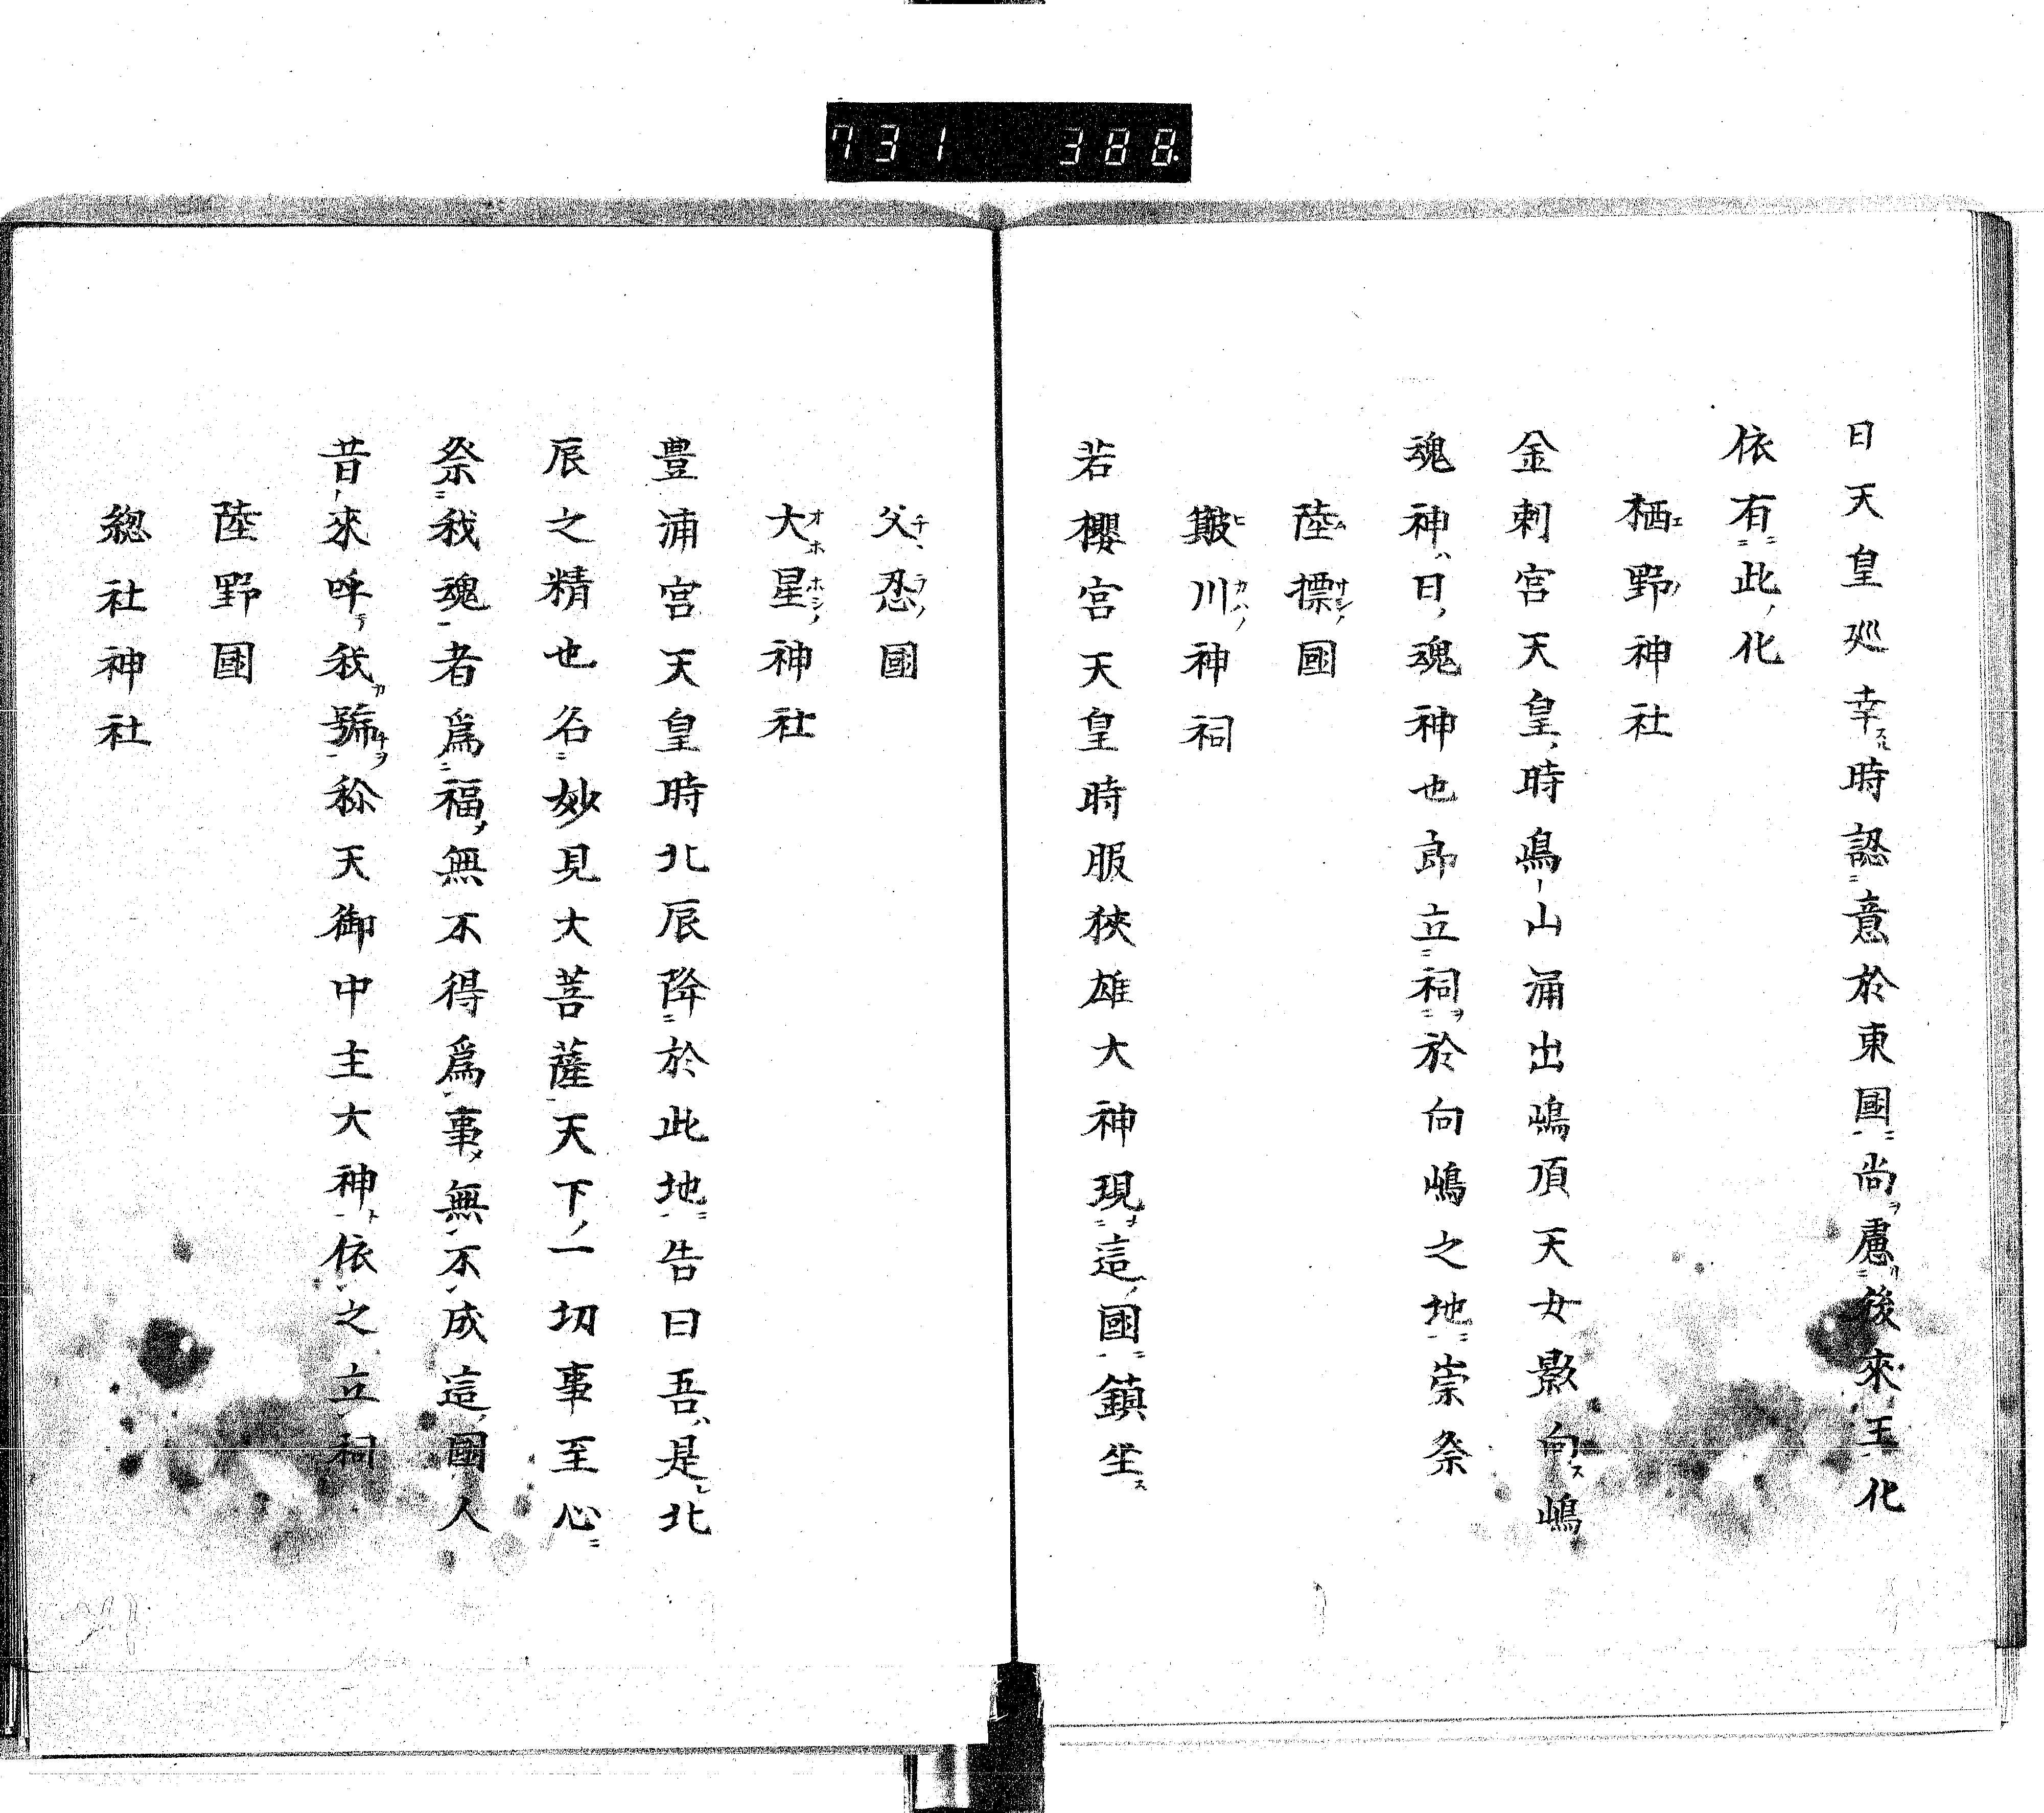 731 388
日天皇巡幸スル時認意於東國尚慮後來王化
依有此化
栖野神社
金刺宮天皇時嶋山涌出嶋頂天女影向ス嶋
魂神ハ日魂神也即立祠於向嶋之地崇祭
陸摽國
簸川神祠
若櫻宮天皇時服狹雄大神現這國鎮坐ス
父忍國
大星神社
豊浦宮天皇時北辰降於此地告曰吾ハ是北
辰之精也名妙見大菩薩天下ノ一切事至心ニ
祭我魂者爲福無不得爲事無不成這國人
昔來呼我號称天御中主大神依之立祠
陸野國
総社神社